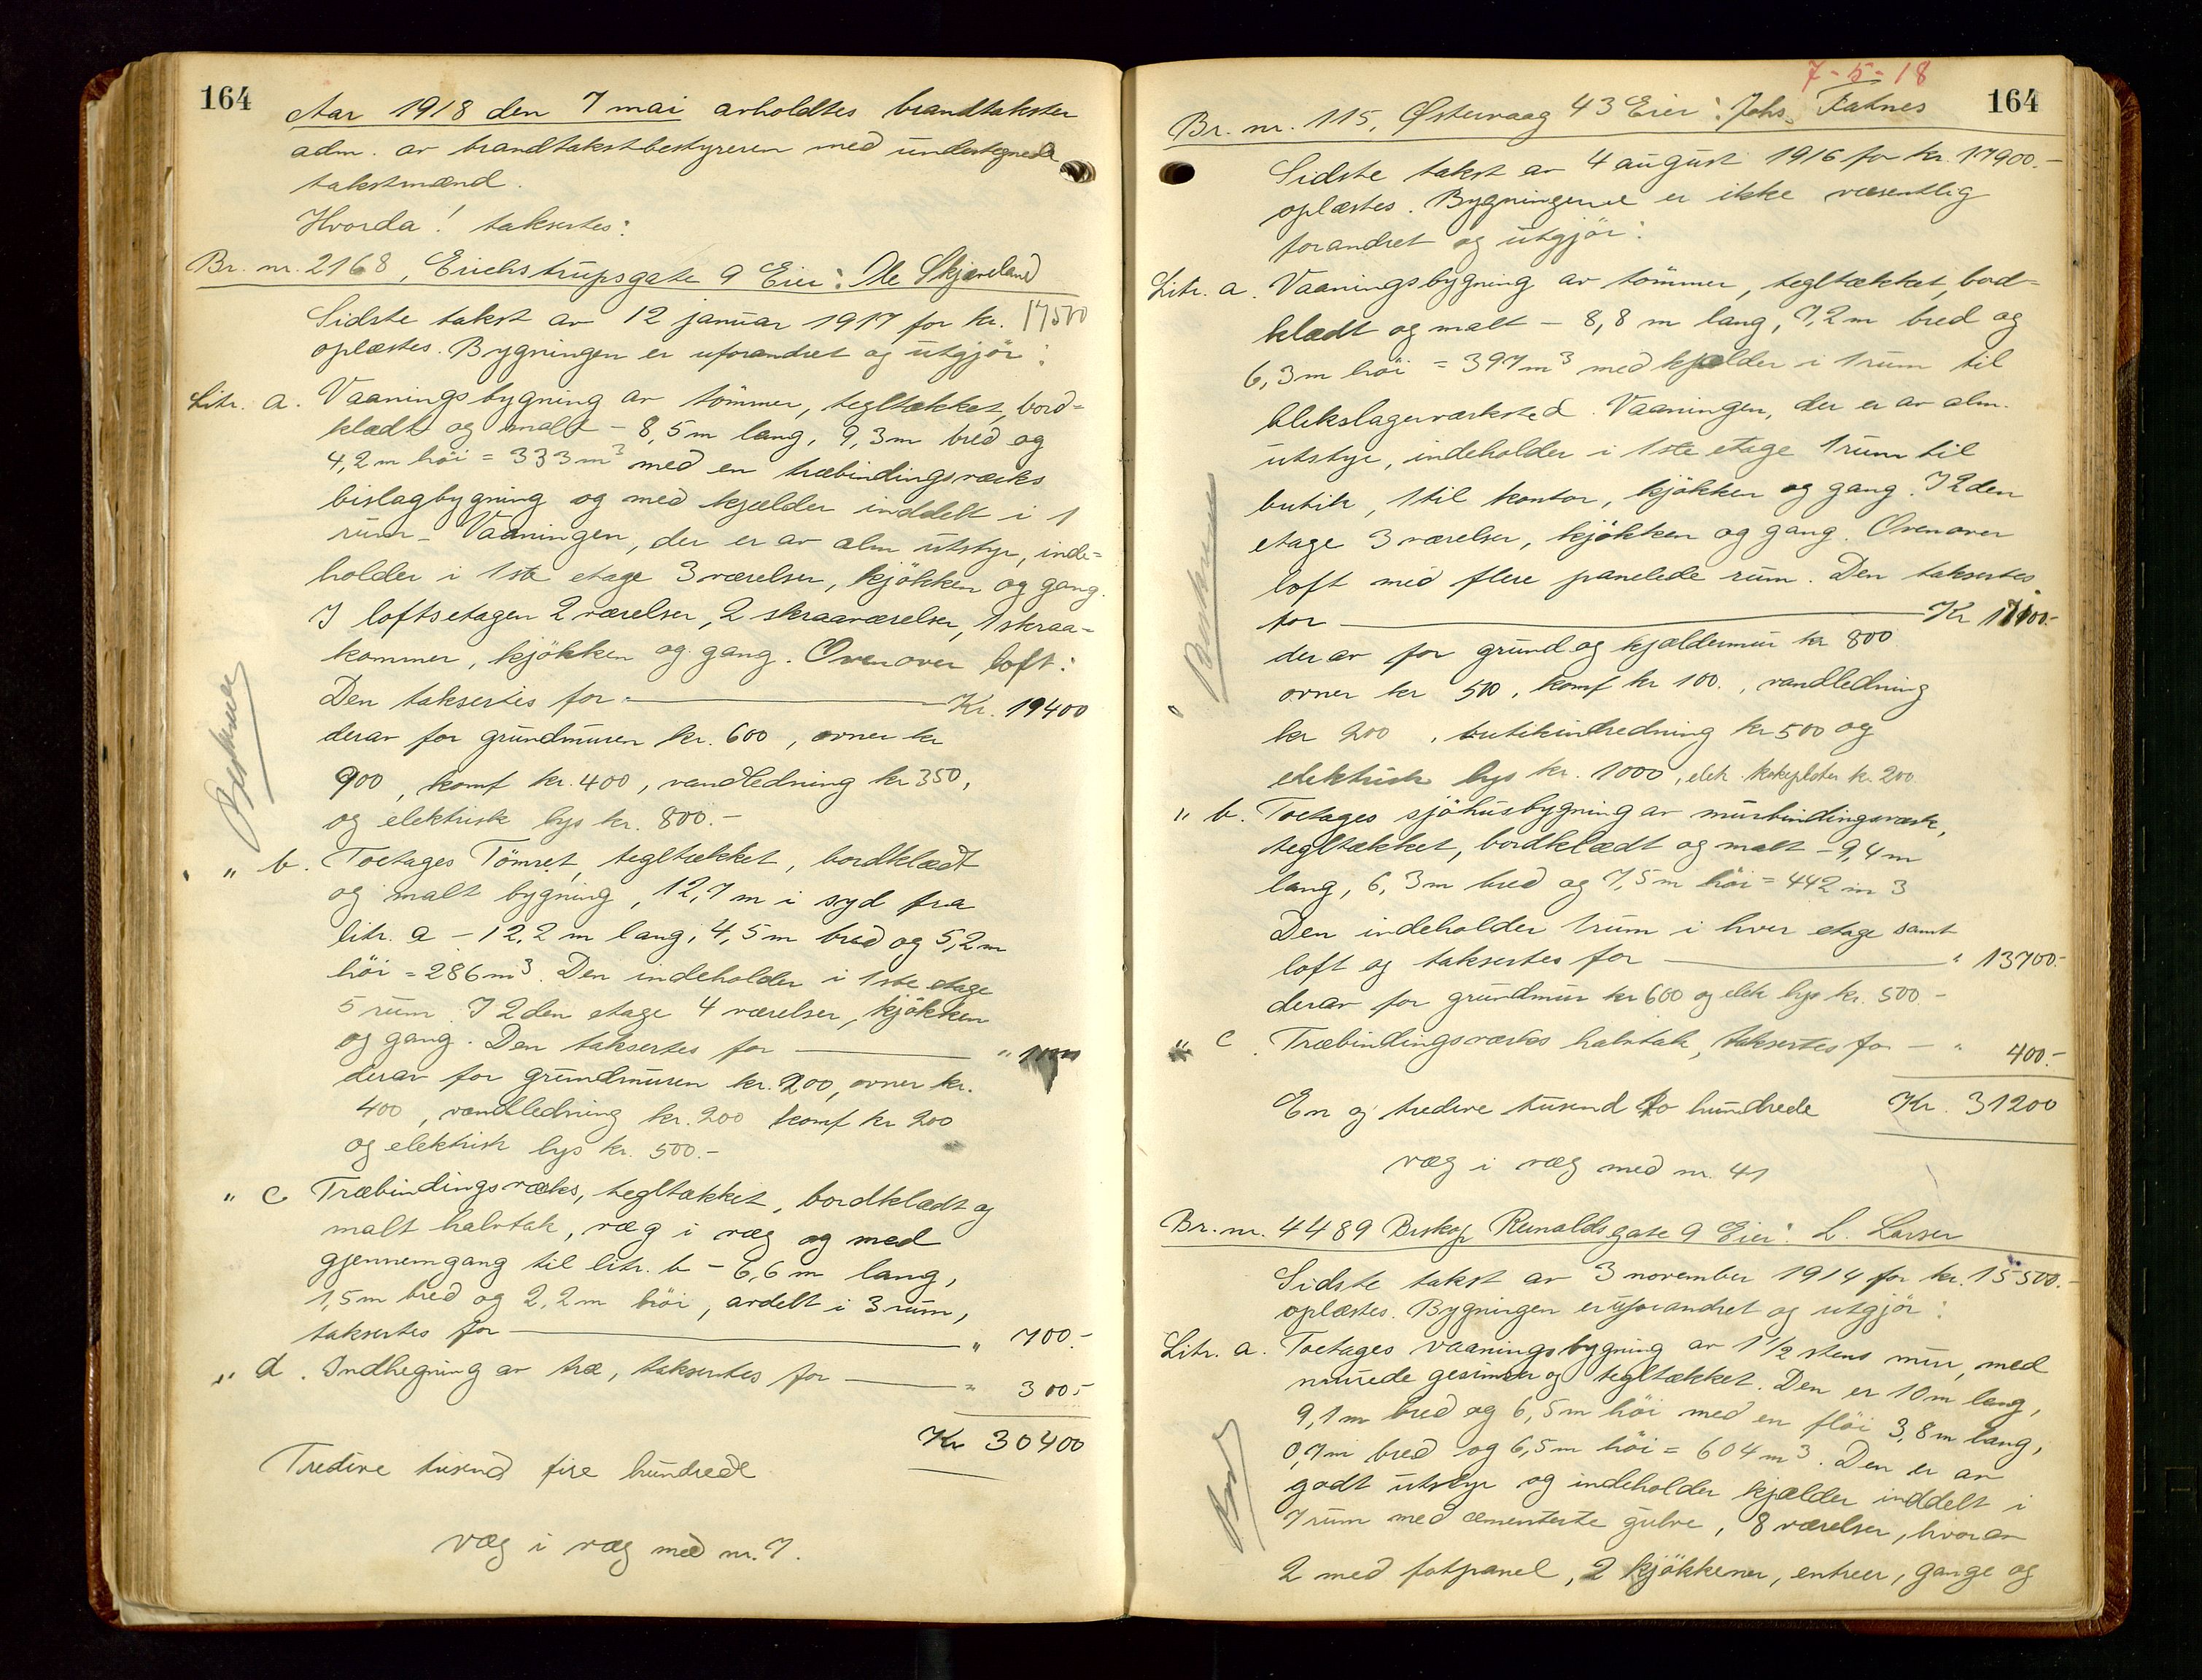 164
Aar 1918 den 7 mai avholdtes brandtakster
adm. av brandtakstbestyreren med undertegnede
takstmænd.
Hvorda! taksertes:
Br. nr. 2168, Erichstrupsgate 9 Eier: Ole Skjæveland
Sidste takst av 12 januar 1917 for kr. 17500
oplæstes. Bygningen er uforandret og utgjør:
Litr. a. Vaaningsbygning av tømmer, tegltækket, bord=
klædt og malt - 8,5 m lang, 9,3 m bred og
4,2 m høi = 333 m³ med en træbindingsværks
bislagbygning og med kjælder inddelt i 1
rum - Vaaningen, der er av alm utstyr, inde=
holder i 1ste etage 3 værelser, kjøkken og gang.
I loftsetagen 2 værelser, 2 skraaværelser, 1 skraa-
kammer, kjøkken og gang. Ovenover loft:
Den taksertes for Kr. 19400
derav for grundmuren kr. 600, ovner kr
900, komf kr. 400, vandledning kr 350,
og elektrisk lys kr. 800.-
" b. Toetages Tømret, tegltækket, bordklædt
og malt bygning, 12,7 m i syd fra
litr. a - 12,2 m lang, 4,5 m bred og 5,2 m
høi = 286 m³. Den indeholder i 1ste etage
5 rum. I 2den etage 4 værelser, kjøkken
og gang. Den taksertes for "
derav for grundmuren kr. 200, ovner kr.
400, vandledning kr. 200 komf kr 200
og elektrisk lys kr. 500.-
" c Træbindingsværks, tegltækket, bordklædt og
malt halvtak, væg i væg og med
gjennemgang til litr. b - 6,6 m lang,
1,5 m bred og 2,2 m høi, avdelt i 3 rum,
taksertes for " 700.-
" d. Indhegning av træ, taksertes for " 300.-
Kr 30400
Tredive tusend fire hundrede
Væg i væg med nr. 7.
7-5-18
164
Br. nr. 115, Østervaag 43 Eier: Johs. Fatnes
Sidste takst av 4 august 1916 for kr. 17900.-
oplæstes. Bygningerne er ikke væsentlig
forandret og utgjør:
Litr. a. Vaaningsbygning av tømmer, tegltækket, bord=
klædt og malt - 8,8 m lang, 7,2 m bred og
6,3 m høi = 397 m³ med kjælder i 1 rum til
blikslagerværksted. Vaaningen, der er av alm.
utstyr, indeholder i 1ste etage 1 rum til
butik, 1 til kontor, kjøkken og gang. I 2den
etage 3 værelser, kjøkken og gang. Ovenover
loft med flere panelede rum. Den taksertes
for Kr 17100.-
derav for grund og kjældermur kr 800
ovner kr 500, komf kr 100., vandledning
kr 200, butikindredning kr 500 og
elektrisk lys kr. 1000, elek. kokeplater kr. 200.
" b. Toetages sjøhusbygning av murbindingsværk,
tegltækket, bordklædt og malt - 9,4 m
lang, 6,3 m bred og 7,5 m høi = 442 m 3
Den indeholder 1 rum i hver etage samt
loft og taksertes for " 13700.-
derav for grundmur kr 600 og elek lys kr. 500.-
" c. Træbindingsværks halvtak, taksertes for - " 400.-
En og tredive tusend to hundrede Kr. 31200
væg i væg med nr. 41
Br. nr. 4489 Biskop Reinaldsgate 9 Eier: L. Larsen
Sidste takst av 3 november 1914 for kr. 15500.-
oplæstes. Bygningen er uforandret og utgjør:
Litr. a. Toetages vaaningsbygning av 1 1/2 stens mur, med
murede gesimser og tegltækket. Den er 10 m lang,
9,1 m bred og 6,5 m høi med en fløi 3,8 m lang,
0,7 m bred og 6,5 m høi = 604 m³. Den er av
godt utstyr og indeholder kjælder inddelt i
7 rum med cementerte gulve, 8 værelser, hvorav
2 med fotpanel, 2 kjøkkener, entreer, gange og